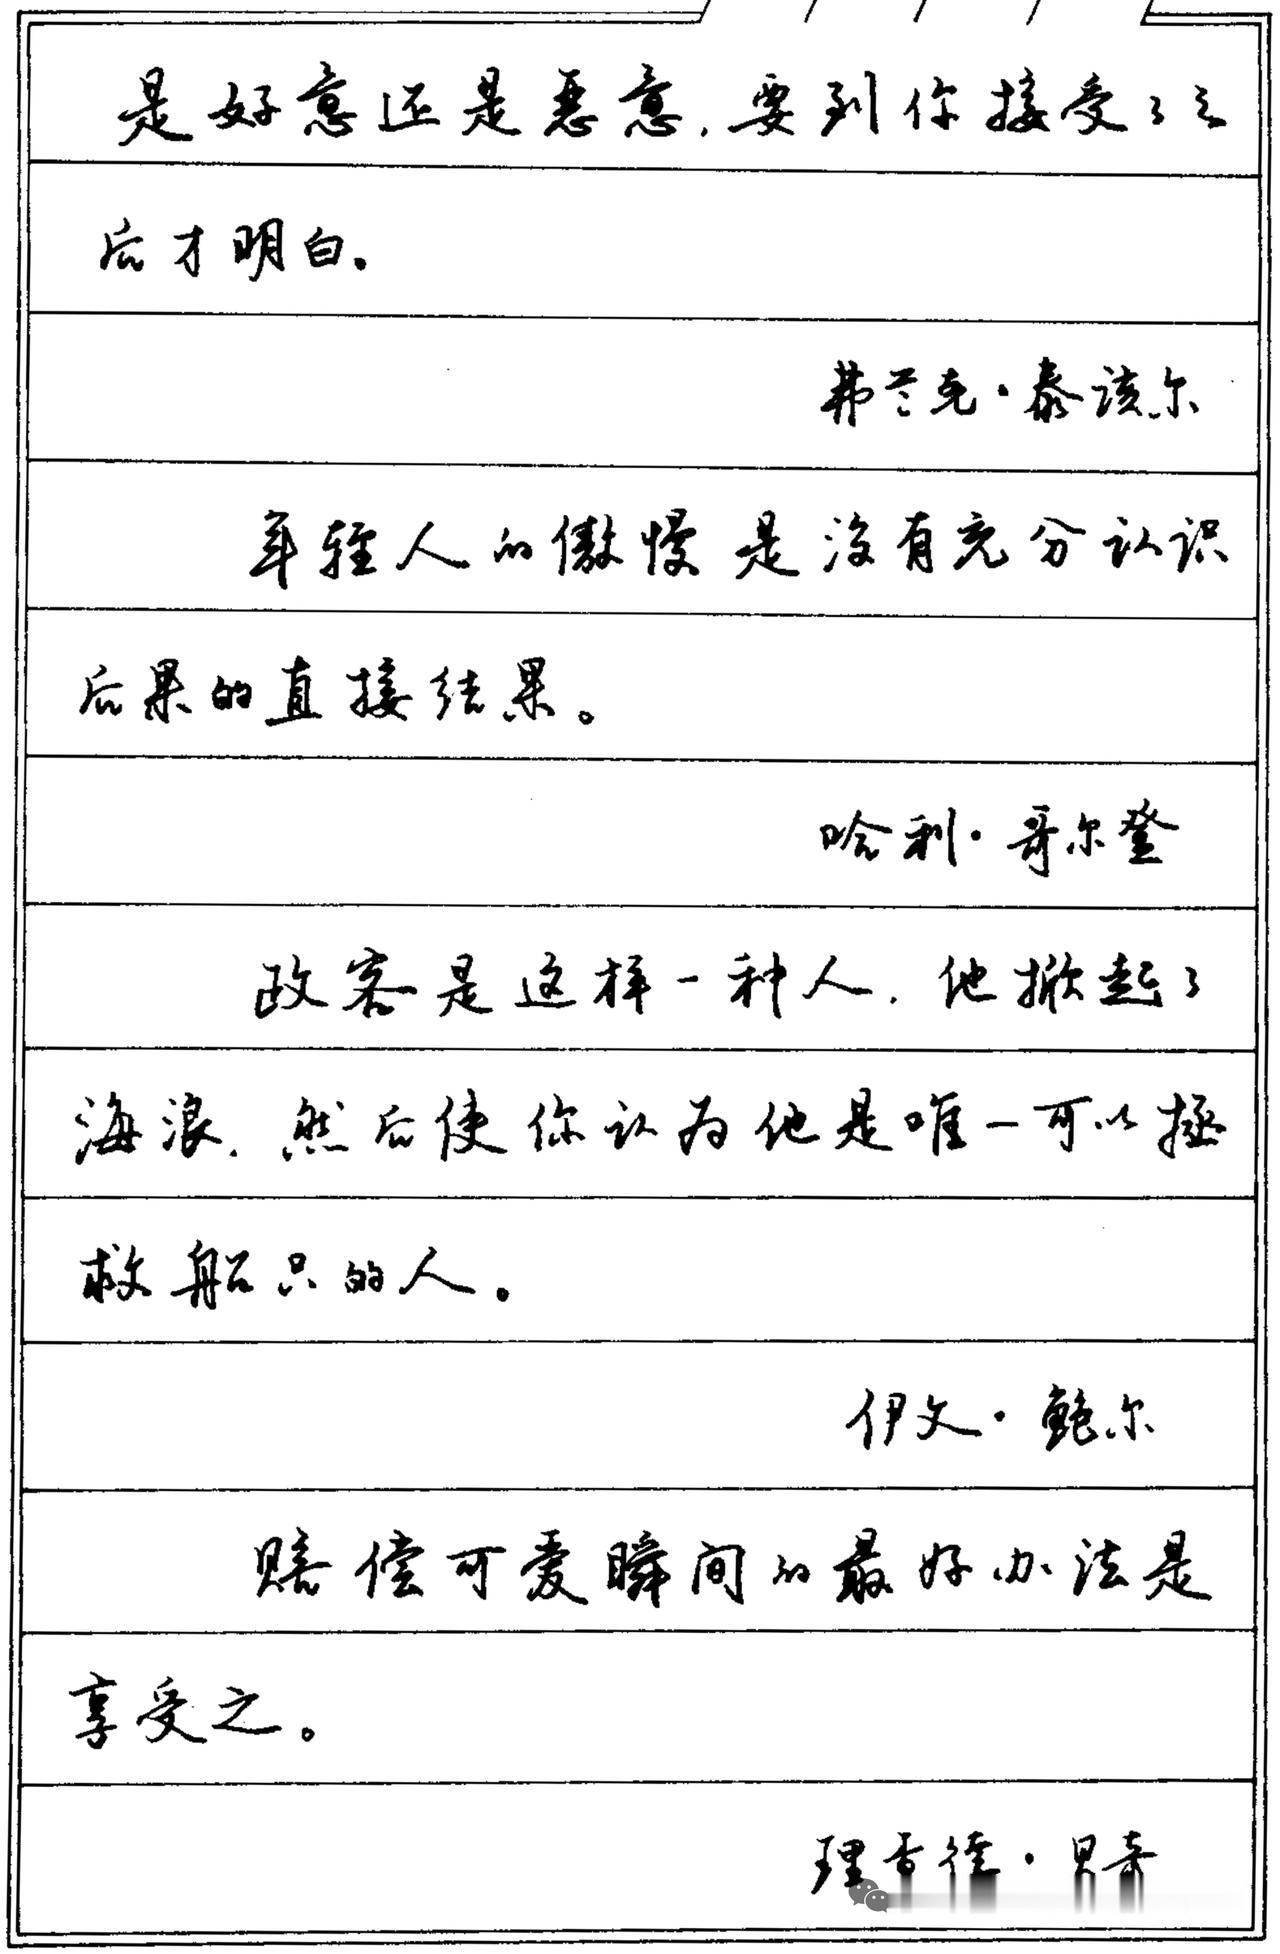 是好意还是恶意，要到你接受了之
后才明白。
弗兰克·泰该尔
年轻人的傲慢是没有充分认识
后果的直接结果。
哈利·哥尔登
政客是这样一种人，他掀起了
海浪，然后使你认为他是唯一可以拯
救船只的人。
伊文·鲍尔
赔偿可爱瞬间的最好办法是
享受之。
理查德·贝奇